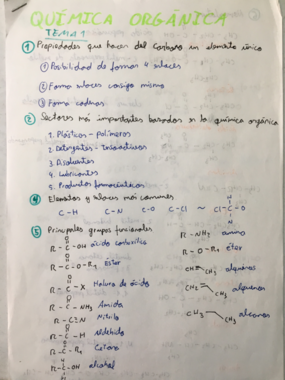 QUÍMICA ORGÁNICA
TEMA 1
① Propiedades que hacen del carbono un elemento único
① Posibilidad de formar 4 enlaces
② Forma enlaces consigo mismo
③ Forma cadenas
② Sectores más importantes basados en la química orgánica
1. Plásticos - Polímeros
2. Detergentes - Tensoactivos
3. Disolventes
4. Lubricantes
5. Productos farmacéuticos
④ Elementos y enlaces más comunes
C-H C-N C-O C-Cl ~ Cl-C-O
③ Principales grupos funcionales
R-C-OH ácido carboxílico
R-C-O-R₁ Éster
R-C-X Haluro de ácido
R-C-NH₂ Amida
R-C≡N Nitrilo
R-C-H Aldehído
R-C-R₁ Cetona
R-C-OH alcohol
R-NH₂ amina
R-O-R₁ éter
CH≡CH₃ alquinos
CH₂=CH₃ alquenos
CH₃-CH₃ alcanos